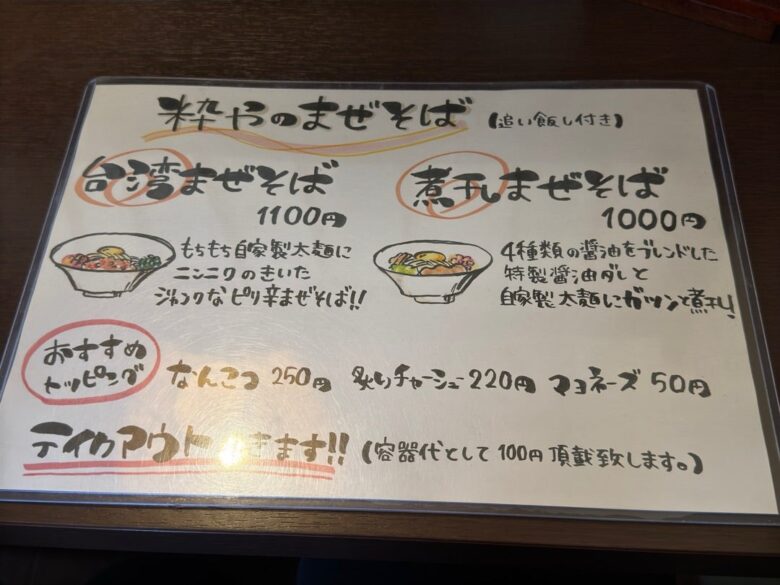 粋やのまぜそば (追い飯し付き)
台湾まぜそば
1100円
もちもち自家製太麺に
ニンニクのきいた
ジャンクなピリ辛まぜそば!!
煮干まぜそば
1000円
4種類の醤油をブレンドした
特製醤油ダレと
自家製太麺にガツンと煮干!
おすすめ
トッピング
なんこつ 250円 炙りチャーシュー 220円 マヨネーズ 50円
テイクアウト きます!! (容器代として100円頂戴致します。)